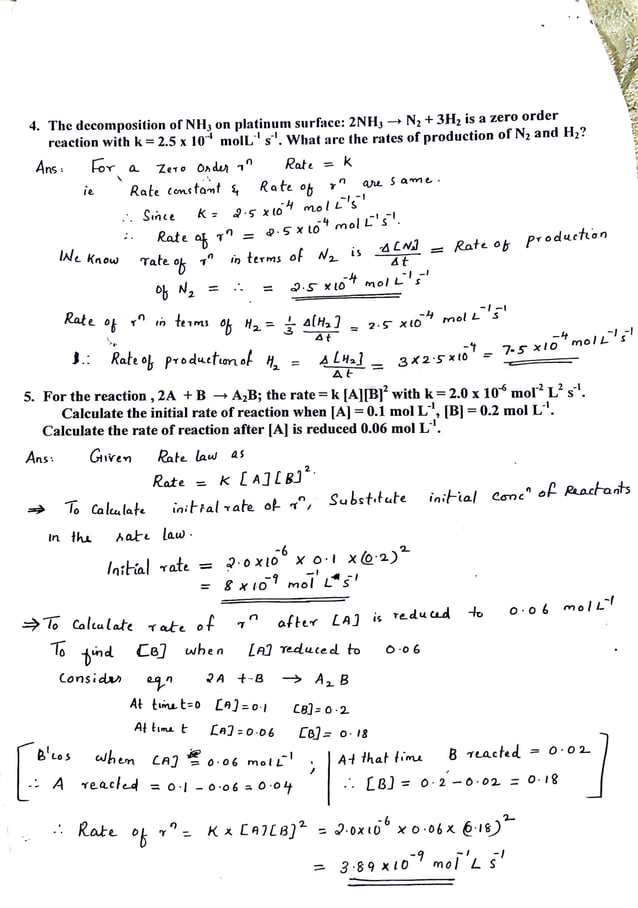 4. The decomposition of NH₃ on platinum surface: 2NH₃ → N₂ + 3H₂ is a zero order
reaction with k = 2.5 x 10⁻⁴ molL⁻¹ s⁻¹. What are the rates of production of N₂ and H₂?
Ans: For a Zero Order rⁿ Rate = k
ie Rate constant & Rate of rⁿ are same.
∴ Since K = 2.5 × 10⁻⁴ mol L⁻¹s⁻¹
∴ Rate of rⁿ = 2.5 × 10⁻⁴ mol L⁻¹s⁻¹.
We know rate of rⁿ in terms of N₂ is Δ[N₂]/Δt = Rate of production
of N₂ = ∴ = 2.5 × 10⁻⁴ mol L⁻¹s⁻¹
Rate of rⁿ in terms of H₂ = 1/3 Δ[H₂]/Δt = 2.5 × 10⁻⁴ mol L⁻¹s⁻¹
∴ Rate of production of H₂ = Δ[H₂]/Δt = 3 × 2.5 × 10⁻⁴ = 7.5 × 10⁻⁴ mol L⁻¹s⁻¹
5. For the reaction , 2A + B → A₂B; the rate = k [A][B]² with k = 2.0 x 10⁻⁶ mol⁻² L² s⁻¹.
Calculate the initial rate of reaction when [A] = 0.1 mol L⁻¹, [B] = 0.2 mol L⁻¹.
Calculate the rate of reaction after [A] is reduced 0.06 mol L⁻¹.
Ans: Given Rate law as
Rate = K [A][B]².
⇒ To Calculate initial rate of rⁿ, Substitute initial concⁿ of Reactants
in the rate law.
Initial rate = 2.0×10⁻⁶ × 0.1 × (0.2)²
= 8 × 10⁻⁹ mol⁻¹ L s⁻¹
⇒ To Calculate rate of rⁿ after [A] is reduced to 0.06 mol L⁻¹
To find [B] when [A] reduced to 0.06
Consider eqn 2A + B → A₂B
At time t=0 [A] = 0.1 [B] = 0.2
At time t [A] = 0.06 [B] = 0.18
B'cos when [A] = 0.06 mol L⁻¹ ; At that time B reacted = 0.02
∴ A reacted = 0.1 - 0.06 = 0.04 ∴ [B] = 0.2 - 0.02 = 0.18
∴ Rate of rⁿ = K × [A][B]² = 2.0×10⁻⁶ × 0.06 × (0.18)²
= 3.89 × 10⁻⁹ mol⁻¹ L s⁻¹